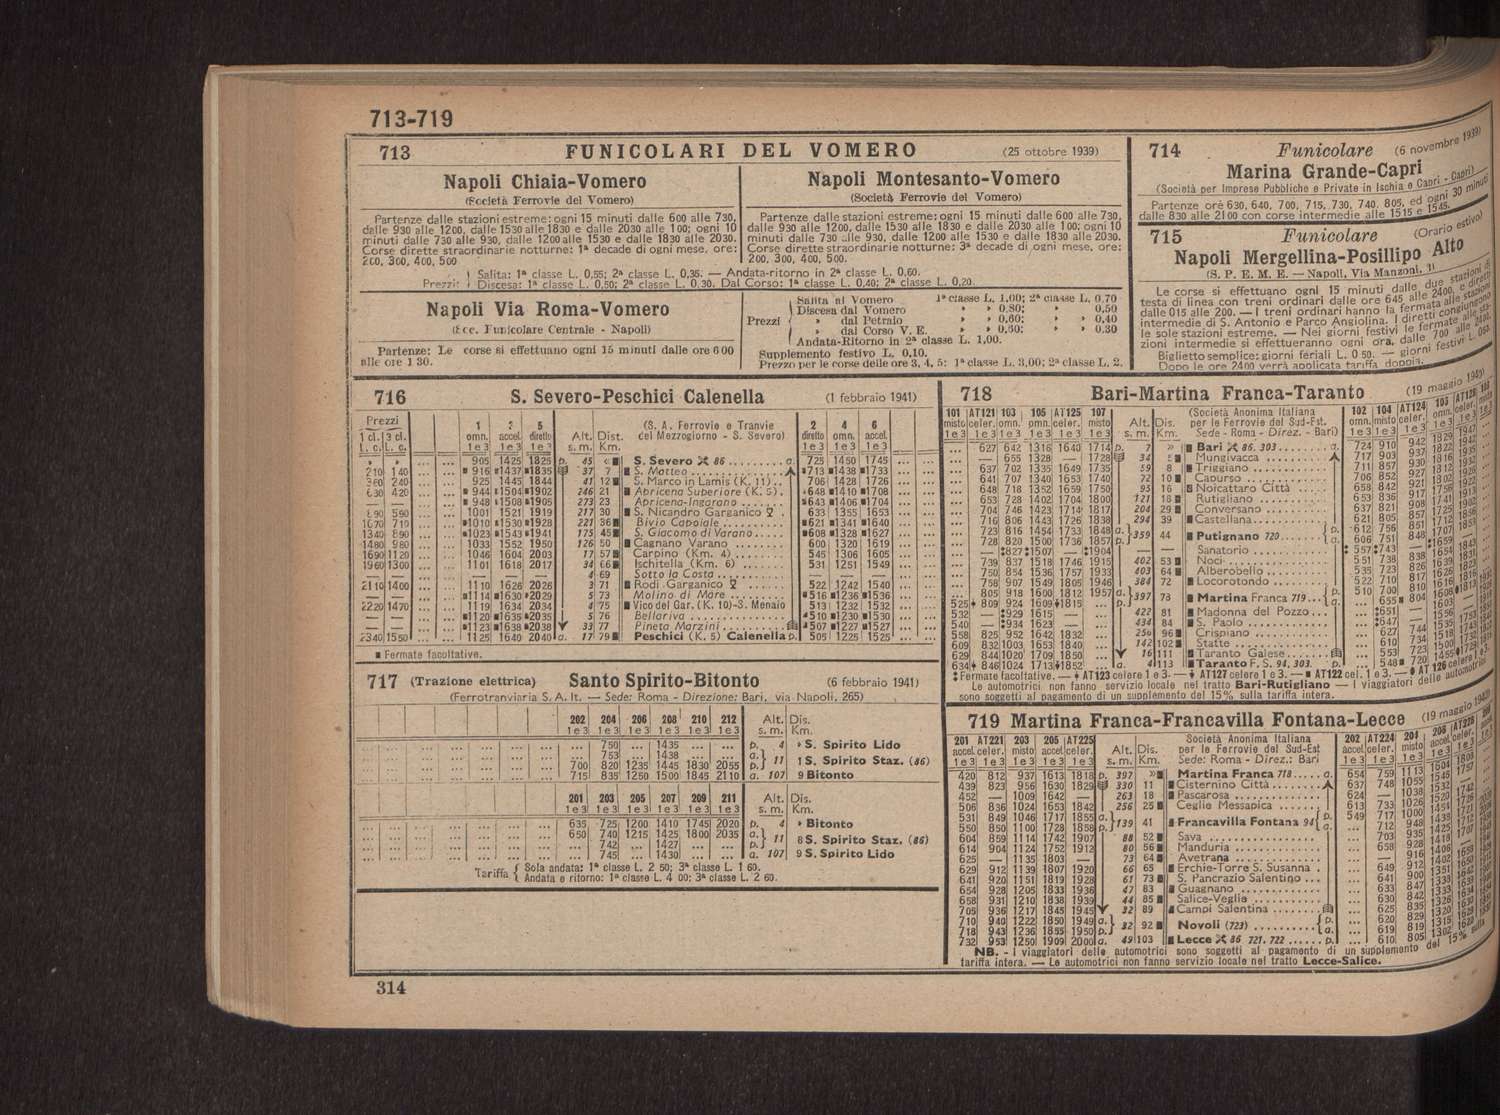 713-719
713 FUNICOLARI DEL VOMERO (25 ottobre 1939)
Napoli Chiaia-Vomero
(Società Ferrovie del Vomero)
Partenze dalle stazioni estreme: ogni 15 minuti dalle 600 alle 730,
dalle 930 alle 1200, dalle 1530 alle 1830 e dalle 2030 alle 100; ogni 10
minuti dalle 730 alle 930, dalle 1200 alle 1530 e dalle 1830 alle 2030.
Corse dirette straordinarie notturne: 1ª decade di ogni mese, ore:
200, 300, 400, 500
Napoli Montesanto-Vomero
(Società Ferrovie del Vomero)
Partenze dalle stazioni estreme: ogni 15 minuti dalle 600 alle 730,
dalle 930 alle 1200, dalle 1530 alle 1830 e dalle 2030 alle 100; ogni 10
minuti dalle 730 alle 930, dalle 1200 alle 1530 e dalle 1830 alle 2030.
Corse dirette straordinarie notturne: 3ª decade di ogni mese, ore:
200, 300, 400, 500.
Prezzi: Salita: 1ª classe L. 0,55; 2ª classe L. 0,35. — Andata-ritorno in 2ª classe L. 0,60.
Discesa: 1ª classe L. 0,50; 2ª classe L. 0.30. Dal Corso: 1ª classe L. 0,40; 2ª classe L. 0,20.
Napoli Via Roma-Vomero
(Soc. Funicolare Centrale - Napoli)
Partenze: Le corse si effettuano ogni 15 minuti dalle ore 600
alle ore 1 30.
Prezzi
Salita al Vomero 1ª classe L. 1,00; 2ª classe L. 0,70
Discesa dal Vomero » » 0,80; » » 0,50
» dal Petraio » » 0,60; » » 0,40
» dal Corso V. E. » » 0,50; » » 0.30
Andata-Ritorno in 2ª classe L. 1,00.
Supplemento festivo L. 0,10.
Prezzo per le corse delle ore 3, 4, 5: 1ª classe L. 3,00; 2ª classe L. 2.
714 Funicolare (6 novembre 1939)
Marina Grande-Capri
(Società per Imprese Pubbliche e Private in Ischia e Capri - Capri)
Partenze ore 630, 640, 700, 715, 730, 740, 805, ed ogni 30 minuti
dalle 830 alle 2100 con corse intermedie alle 1515 e 1545.
715 Funicolare (Orario estivo)
Napoli Mergellina-Posillipo Alto
(S. P. E. M. E. — Napoli, Via Manzoni, 1)
Le corse si effettuano ogni 15 minuti dalle due stazioni di
testa di linea con treni ordinari dalle ore 645 alle 2400, e diretti
dalle 015 alle 200. — I treni ordinari hanno la fermata alle stazioni
intermedie di S. Antonio e Parco Angiolina. I diretti congiungono
le sole stazioni estreme. — Nei giorni festivi le fermate alle stazioni
intermedie si effettueranno ogni ora, dalle 700 alle 2400.
Biglietto semplice: giorni feriali L. 0 50. — giorni festivi L. 0.60.
Dopo le ore 2400 verrà applicata tariffa doppia.
716 S. Severo-Peschici Calenella (1 febbraio 1941)
(S. A. Ferrovie e Tranvie
del Mezzogiorno - S. Severo)
Prezzi 1 cl. 3 cl. L. c. L. c.
1 omn. 1 e 3 | 3 accel. 1 e 3 | 5 diretto 1 e 3 | Alt. s. m. | Dist. Km. | 2 diretto 1 e 3 | 4 omn. 1 e 3 | 6 accel. 1 e 3
» » 905 1425 1825 p. 45 « S. Severo 86 a. 725 1450 1745
210 140 916 1437 1835 37 7 S. Matteo 713 1438 1733
360 240 925 1445 1844 41 12 S. Marco in Lamis (K. 11) 706 1428 1726
630 420 944 1504 1902 246 21 Apricena Superiore (K. 5) 648 1410 1708
— — 948 1508 1905 273 23 Apricena-Ingarano 643 1406 1704
890 590 1001 1521 1919 217 30 S. Nicandro Garganico 633 1355 1653
1070 710 1010 1530 1928 221 36 Bivio Capoiale 621 1341 1640
1340 890 1023 1543 1941 175 45 S. Giacomo di Varano 608 1328 1627
1480 980 1033 1552 1950 126 50 Cagnano Varano 600 1320 1619
1690 1120 1046 1604 2003 17 57 Carpino (Km. 4) 545 1306 1605
1960 1300 1101 1618 2017 34 66 Ischitella (Km. 6) 531 1251 1549
— — — — — 4 69 Sotto la Costa — — —
2110 1400 1110 1626 2026 3 71 Rodi Garganico 522 1242 1540
— — 1114 1630 2029 5 73 Molino di Mare 516 1236 1536
2220 1470 1119 1634 2034 4 75 Vico del Gar. (K. 10)-S. Menaio 513 1232 1532
— — 1120 1635 2035 5 76 Bellariva 510 1230 1530
— — 1123 1638 2038 33 77 Pineta Marzini 507 1227 1527
2340 1550 1125 1640 2040 a. 17 79 Peschici (K. 5) Calenella p. 505 1225 1525
Fermate facoltative.
717 (Trazione elettrica) Santo Spirito-Bitonto (6 febbraio 1941)
(Ferrotranviaria S. A. It. — Sede: Roma - Direzione: Bari, via Napoli, 265)
202 204 206 208 210 212 Alt. Dis.
1 e 3 1 e 3 1 e 3 1 e 3 1 e 3 1 e 3 s. m. Km.
... 750 ... 1435 ... ... p. 4 » S. Spirito Lido
... 753 ... 1438 ... ... a.
700 820 1235 1445 1830 2055 p. 11 1 S. Spirito Staz. (86)
715 835 1250 1500 1845 2110 a. 107 9 Bitonto
201 203 205 207 209 211 Alt. Dis.
1 e 3 1 e 3 1 e 3 1 e 3 1 e 3 1 e 3 s. m. Km.
635 725 1200 1410 1745 2020 p. 4 » Bitonto
650 740 1215 1425 1800 2035 a. 11 8 S. Spirito Staz. (86)
... 742 ... 1427 ... ... p.
... 745 ... 1430 ... ... a. 107 9 S. Spirito Lido
Tariffa Sola andata: 1ª classe L. 2 50; 3ª classe L. 1 60.
Andata e ritorno: 1ª classe L. 4 00; 3ª classe L. 2 60.
718 Bari-Martina Franca-Taranto (19 maggio 1940)
(Società Anonima Italiana
per le Ferrovie del Sud-Est.
Sede - Roma - Direz. - Bari)
101 misto 1 e 3 | AT121 celer. 1 e 3 | 103 omn. 1 e 3 | 105 omn. 1 e 3 | AT125 celer. 1 e 3 | 107 misto 1 e 3 | Alt. s. m. | Dis. Km. | 102 misto | 104 omn. | AT124 celer.
... 627 642 1316 1640 1714 p. 7 » Bari 86. 303 a. 724 910
... — 655 1328 — 1728 34 Mungivacca 717 903
... 637 702 1335 1649 1735 59 8 Triggiano 711 857
... 641 707 1340 1653 1740 72 10 Capurso 706 852
... 648 718 1352 1659 1750 93 16 Noicattaro Città 658 842
... 653 728 1402 1704 1800 121 18 Rutigliano 653 836
... 704 746 1423 1714 1817 204 29 Conversano 637 821
... 716 806 1443 1726 1838 294 39 Castellana 621 805
... 723 816 1454 1733 1848 a. 359 44 Putignano 720 p. 612 756
... 728 820 1500 1736 1857 p. a. 606 751
... — 827 1507 — 1904 Sanatorio 557 743
... 739 837 1518 1746 1915 402 53 Noci 551 738
... 750 854 1536 1757 1933 403 64 Alberobello 535 723
... 758 907 1549 1805 1946 384 72 Locorotondo 522 710
... 805 918 1600 1812 1957 a. 397 73 Martina Franca 719 p. 510 700
525 809 924 1609 1815 ... p. a. ... 655
532 — 929 1615 — ... 422 81 Madonna del Pozzo ... 651
540 — 934 1623 — ... 434 84 S. Paolo ... 647
558 825 952 1642 1832 ... 250 96 Crispiano ... 627
609 832 1003 1653 1840 ... 142 102 Statte ... 610
629 844 1020 1709 1850 ... 16 111 Taranto Galese ... 553
634 846 1024 1713 1852 ... a. 4 113 Taranto F. S. 94, 303. p. ... 548
Fermate facoltative. — AT123 celere 1 e 3. — AT127 celere 1 e 3. — AT122 cel. 1 e 3. — AT 126 celere 1 e 3.
Le automotrici non fanno servizio locale nel tratto Bari-Rutigliano — I viaggiatori delle automotrici
sono soggetti al pagamento di un supplemento del 15% sulla tariffa intera.
719 Martina Franca-Francavilla Fontana-Lecce (19 maggio 1940)
Società Anonima Italiana
per le Ferrovie del Sud-Est
Sede: Roma - Direz.: Bari
201 accel. 1 e 3 | AT221 celer. 1 e 3 | 203 misto 1 e 3 | 205 accel. 1 e 3 | AT225 celer. 1 e 3 | Alt. s. m. | Dis. Km. | 202 accel. 1 e 3 | AT224 celer. 1 e 3 | 204 misto 1 e 3
420 812 937 1613 1818 p. 397 » Martina Franca 718 a. 654 759 1113
439 823 956 1630 1829 330 11 Cisternino Città 637 748 1055
452 — 1009 1642 — 263 18 Pascarosa 624 — 1038
506 836 1024 1653 1842 256 25 Ceglie Messapica 613 733 1026
531 849 1046 1717 1855 a. 139 41 Francavilla Fontana 94 p. 549 717 1000
550 850 1100 1728 1858 p. a. ... 712
604 859 1114 1742 1907 88 52 Sava ... 703 935
614 904 1124 1752 1912 80 56 Manduria ... 658 928
625 — 1135 1803 — 73 64 Avetrana ... — 916
629 912 1139 1807 1920 66 65 Erchie-Torre S. Susanna ... 649 912
641 920 1151 1819 1928 61 73 S. Pancrazio Salentino ... 641 900
654 928 1205 1833 1936 47 83 Guagnano ... 633 847
658 931 1210 1838 1939 44 85 Salice-Veglie ... 630 842
705 936 1217 1845 1945 32 89 Campi Salentina ... 625 835
710 940 1222 1850 1949 a. 32 92 Novoli (723) p. ... 620 829
718 943 1236 1855 1950 p. a. ... 619 819
732 953 1250 1909 2000 a. 49 103 Lecce 86 721. 722 p. ... 610 805
NB. - I viaggiatori delle automotrici sono soggetti al pagamento di un supplemento del 15% sulla
tariffa intera. — Le automotrici non fanno servizio locale nel tratto Lecce-Salice.
314